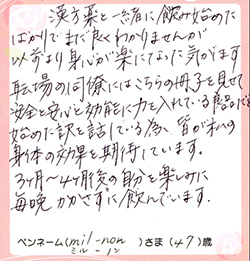 漢方薬と一緒に飲み始めた
ばかりでまだ良くわかりませんが
以前より身心が楽になった気がます
転場の同僚にはこちらの冊子を見せ
安全と安心と効能に力を入れている商品だと
始めた訳を話している為、皆が私の
身体の効果を期待しています。
3ヶ月〜4ヶ月後の自分を楽しみに
毎晩かかさずに飲んでいます.
ペンネーム(mil-non
ミル-ノン
)さま(47)歳